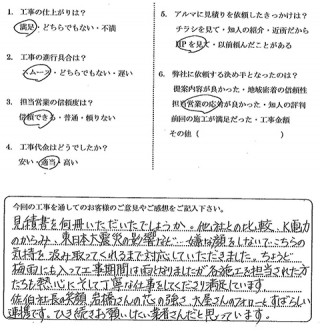 1. 工事の仕上がりは？
満足・どちらでもない・不満
2. 工事の進行具合は？
スムーズ・どちらでもない・遅い
3. 担当営業の信頼度は？
信頼できる・普通・頼りない
4. 工事代金はどうでしたか？
安い・適当・高い
5. アルマに見積りを依頼したきっかけは？
チラシを見て・知人の紹介・近所だから
HPを見て・以前頼んだことがある
6. 弊社に依頼する決め手となったのは？
提案内容が良かった・地域密着の信頼性
担当営業の応対が良かった・知人の評判
前回の施工が満足だった・工事金額
その他（　　　）
今回の工事を通してのお客様のご意見やご感想をご記入下さい。
見積書を何冊いただいたでしょうか。他社との比較、K電力
のからみ、東日本大震災の影響など…嫌な顔をしないでこちらの
気持を汲み取ってくれるまで対応していただきました。ちょうど
梅雨にも入って工事期間は雨となりましたが各施工を担当された方
たちも熱心にそして丁寧な仕事をしてくださり満足しています。
佐伯社長の笑顔、岩橋さんの芯の強さ、大屋さんのフォローもすばらしい
連携です。ひき続きお願いしたい業者さんだと思っています。